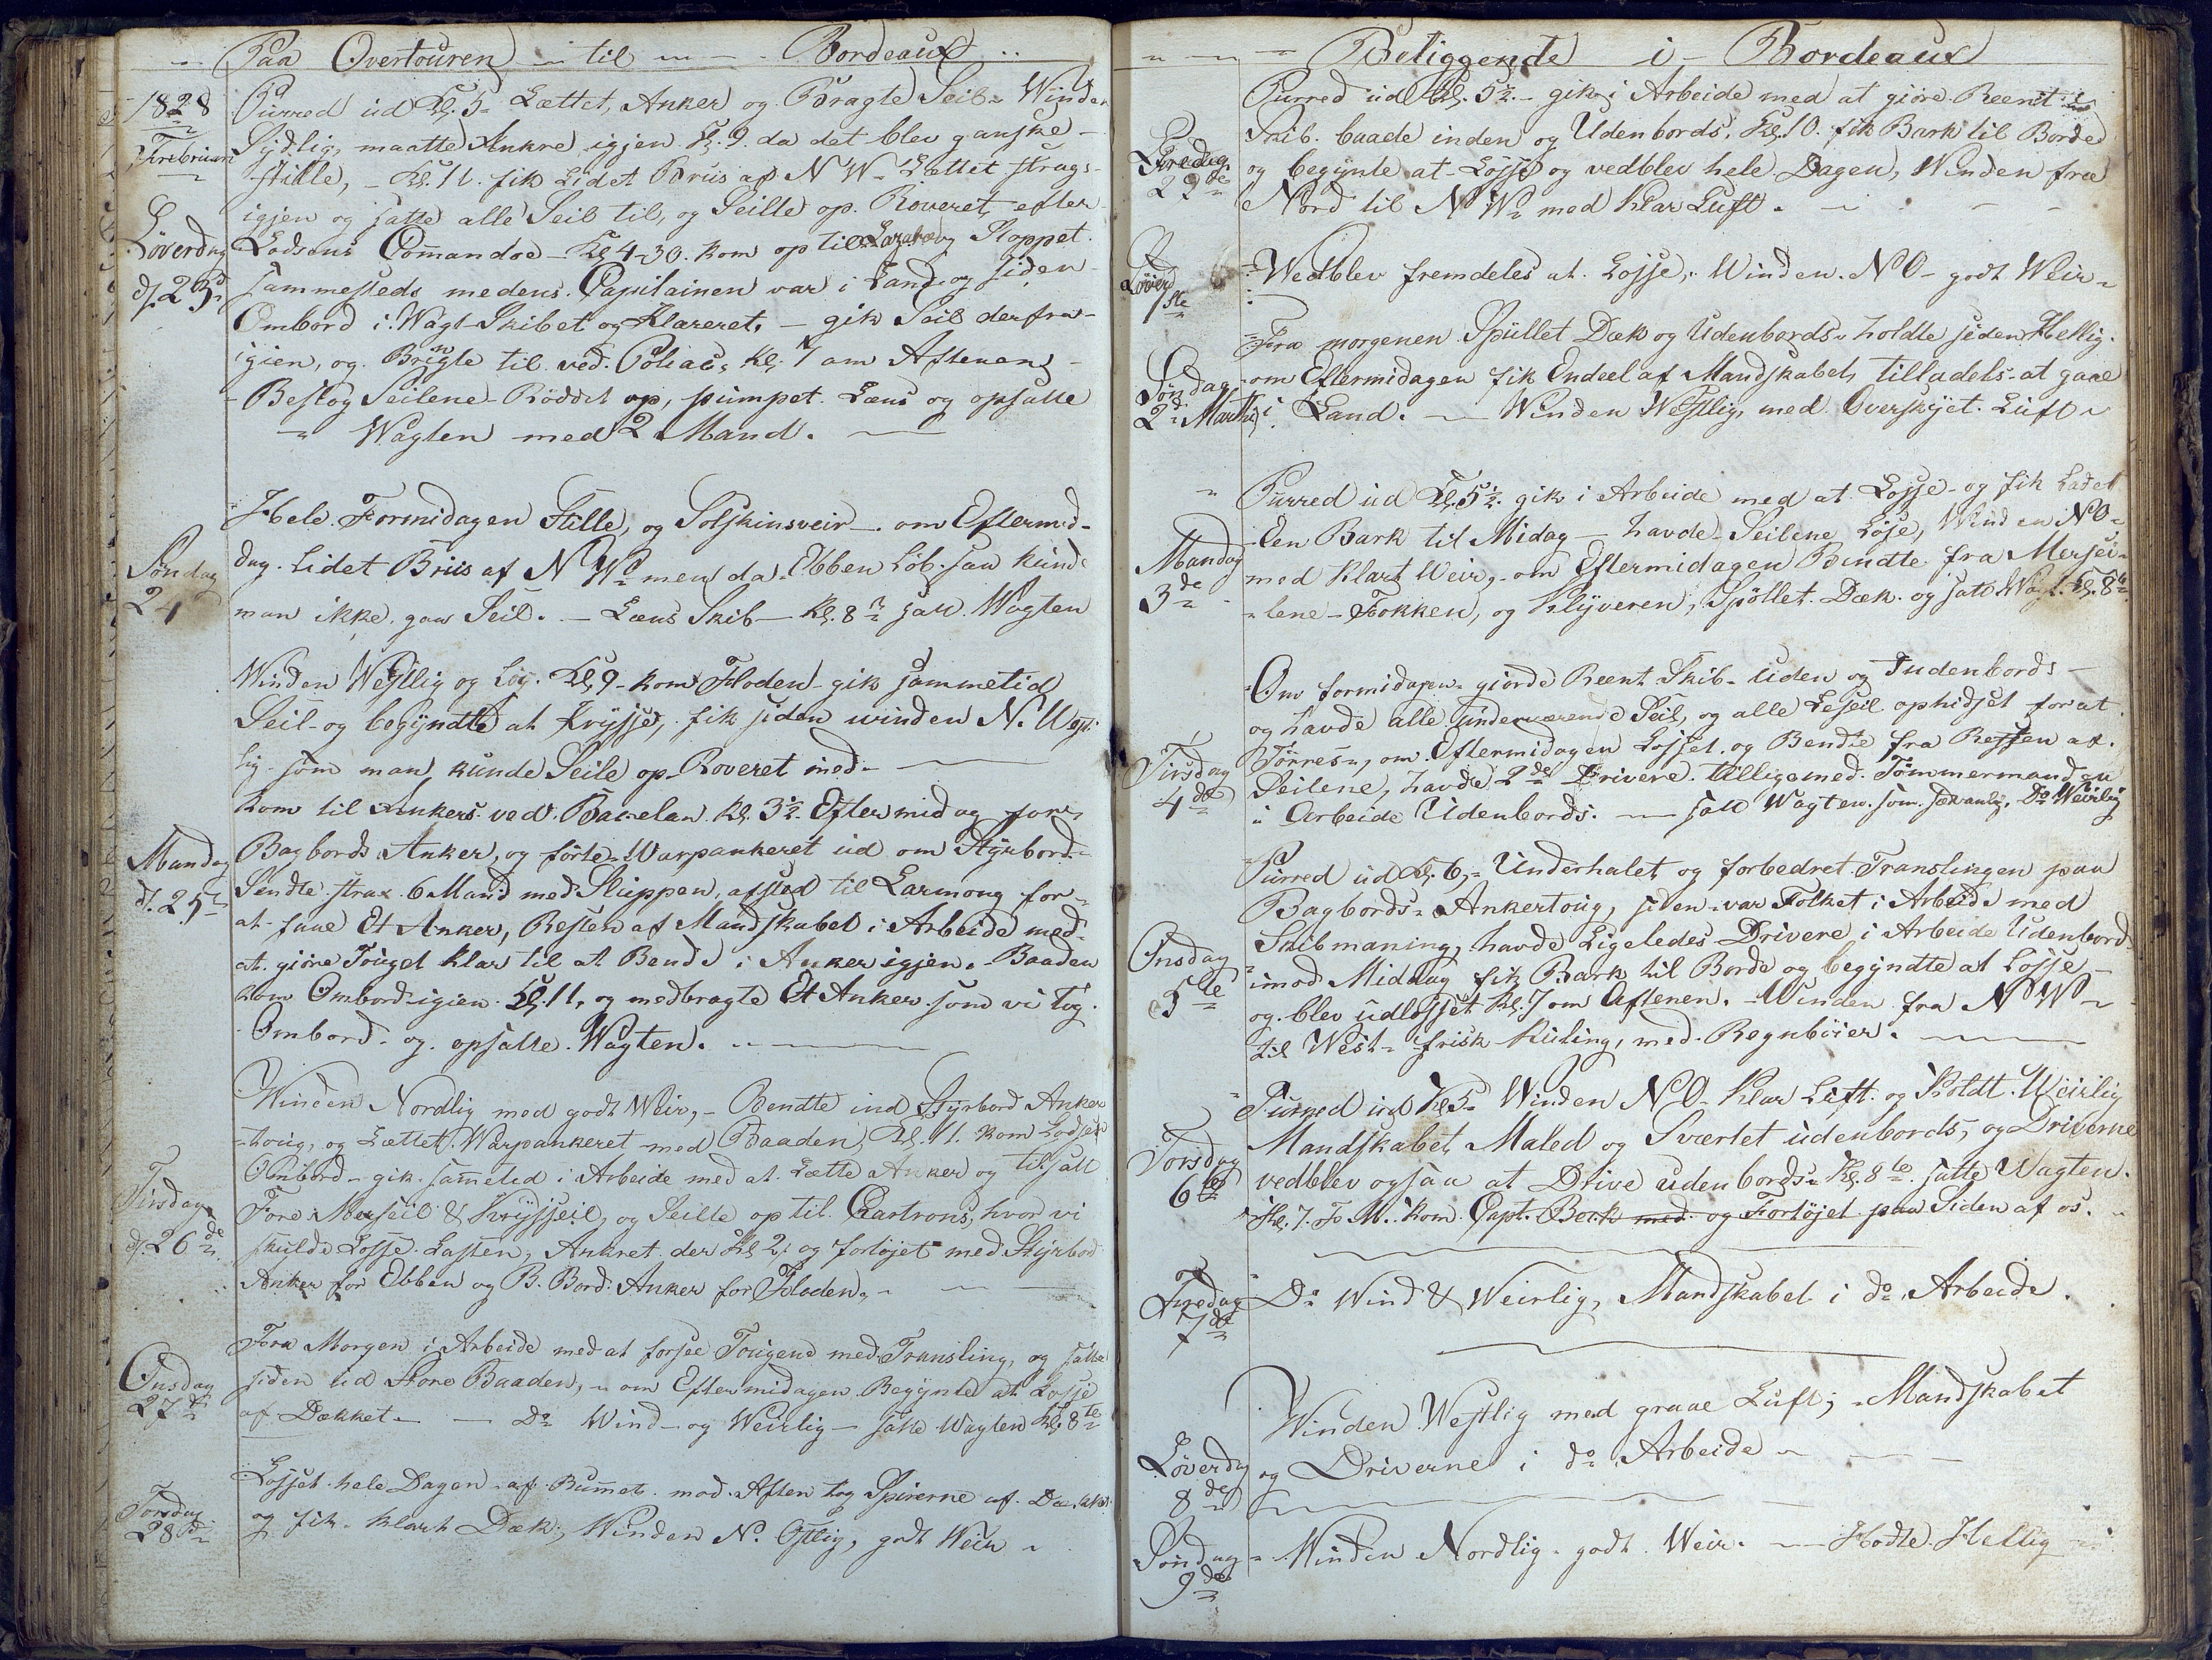 Paa Overtouren til Bordeaux
1828
Februari
Löverdag
d. 23d
Purred ud Kl. 5 Lættet Anker og Bragte Seil Winden
Sydlig, maatte Ankre igjen Kl. 9 da det blev ganske
stille, Kl. 11 fik Lidet Briis af N W Lættet strags
igjen og satte alle Seil til, og Seilte op Roveret efter
Lodsens Commandoe Kl 4-30 kom op til og Stoppet
sammesteds medens Capitainen var i Land og siden
Ombord i Wagt Skibet og Klareret, gik Seil derfra
igien, og Bringte til ved Poliac, Kl. 7 om Aftenen
Beslog Seilene Röddet op, pumpet Læns og opsatte
Wagten med 2 Mand.
Söndag
24
Hele Formidagen Stille, og Solskinsveir om Eftermid-
dag Lidet Briis af N W men da Ebben Löb saa kunde
man ikke gaa Seil. Læns Skib Kl. 8 satt Wagten
Mandag
d. 25
Winden Westlig og Löj. Kl 9 kom Floden gik sammetid
Seil og begyndte at Krysse, fik siden winden N. West
lig som man kunde Seile op Roveret med
kom til Ankers ved Bacelan Kl. 3½ Eftermidag for
Bagbords Anker, og förte Warpankeret ud om Styrbord
Sendte strax 6 Mand med Sluppen, afsted til Larmong for
at faae Et Anker, Resten af Mandskabet i Arbeide med
at giöre Touget klar til at Bende i Anker igjen. Baaden
kom Ombord igien Kl. 11, og medbragte Et Anker som vi tog
Ombord og opsatte Wagten.
Tirsdag
d. 26de
Winden Nordlig med godt Weir, Bendte ind Styrbord Anker
toug, og Lættet Warpankeret med Baaden, Kl. 11 kom Lodsen
Ombord gik sammetid i Arbeide med at Lætte Anker og tilsatt
Fore Merseil & Krysseil, og Seilte op til Chartrons, hvor vi
skulde Losse Lasten, Ankret der Kl 2, og fortöjet med Styrbord
Anker for Ebben og B. Bord Anker for Floden.
Onsdag
27de
Fra Morgen i Arbeide med at forsee Tougene med Transling, og satte
siden ud Store Baaden, om Eftermidagen Begynte at Losse
af Dækket. Do Wind og Weirlig satte Wagten Kl. 8te
Torsdag
28d
Losset hele Dagen af Rummet mod Aften tog Spirerne af Dækket
og fik klart Dæk, Winden N. Ostlig, godt Weir
Beliggende i Bordeaux
Fredag
29de
Purred ud Kl. 5½ gik i Arbeide med at giöre Reent i
Skib baade inden og Udenbords, Kl. 10 fik Bark til Borde
og begynte at Losse og vedblev hele Dagen, Winden fra
Nord til N W med Klar Luft.
Löverd
1ste
Wedblev fremdeles at Losse, Winden N O godt Weir
Söndag
2 Martii
Fra morgenen Spullet Dæk og Udenbords holdte siden Hellig.
om Eftermidagen fik Endeel af Mandskabet tilladels at gaae
i Land. Winden Westlig, med Overskyet Luft
Mandag
3de
Purred ud Kl. 5½ gik i Arbeide med at Losse og fik Ladet
den Bark til Midag havde Seilene Löse, Winden NO
med Klart Weir, om Eftermidagen Bendte fra Mersei
lene Fokken, og Klyveren, Spöllet Dæk og satt Wagt Kl. 8te
Tirsdag
4de
Om formidagen giorde Reent Skib Uden og Indenbords
og havde alle underværende Seil, og alle Leseil ophidset for at
Törres, om Eftermidagen Losset og Bendte fra Resten af
Seilene, havde 2de Drivere tilligemed Tömmermanden
i Arbeide Udenbords. satt Wagten som sædvanlig, Do Weirlig
Onsdag
5te
Purred ud Kl. 6, Underhalet og forbedret Translingen paa
Bagbords Ankertoug, siden var Folket i Arbeide med
Skibmaning, havde Ligeledes Drivere i Arbeide Udenbords
imod Middag fik Bark til Borde og begyndte at Losse
og blev udlosset Kl. 7 om Aftenen. Winden fra N W
til West frisk Kuling, med Regnböier.
Torsdag
6te
Purred ud Kl 5 Winden N O Klar Luft og Koldt Weirlig
Mandskabet Maled og Sværtet udenbords, og Driverne
vedblev ogsaa at Drive udenbords Kl. 8te satte Wagten.
Kl. 7 F. M. kom Capt. Berk med og Fortöjet paa Siden af os.
Fredag
7de
Do Wind & Weirlig, Mandskabet i do Arbeide.
Löverdag
8de
Winden Westlig med graae Luft; Mandskabet
og Driverne i do Arbeide
Söndag
9de
Winden Nordlig godt Weir. Hodte Hellig